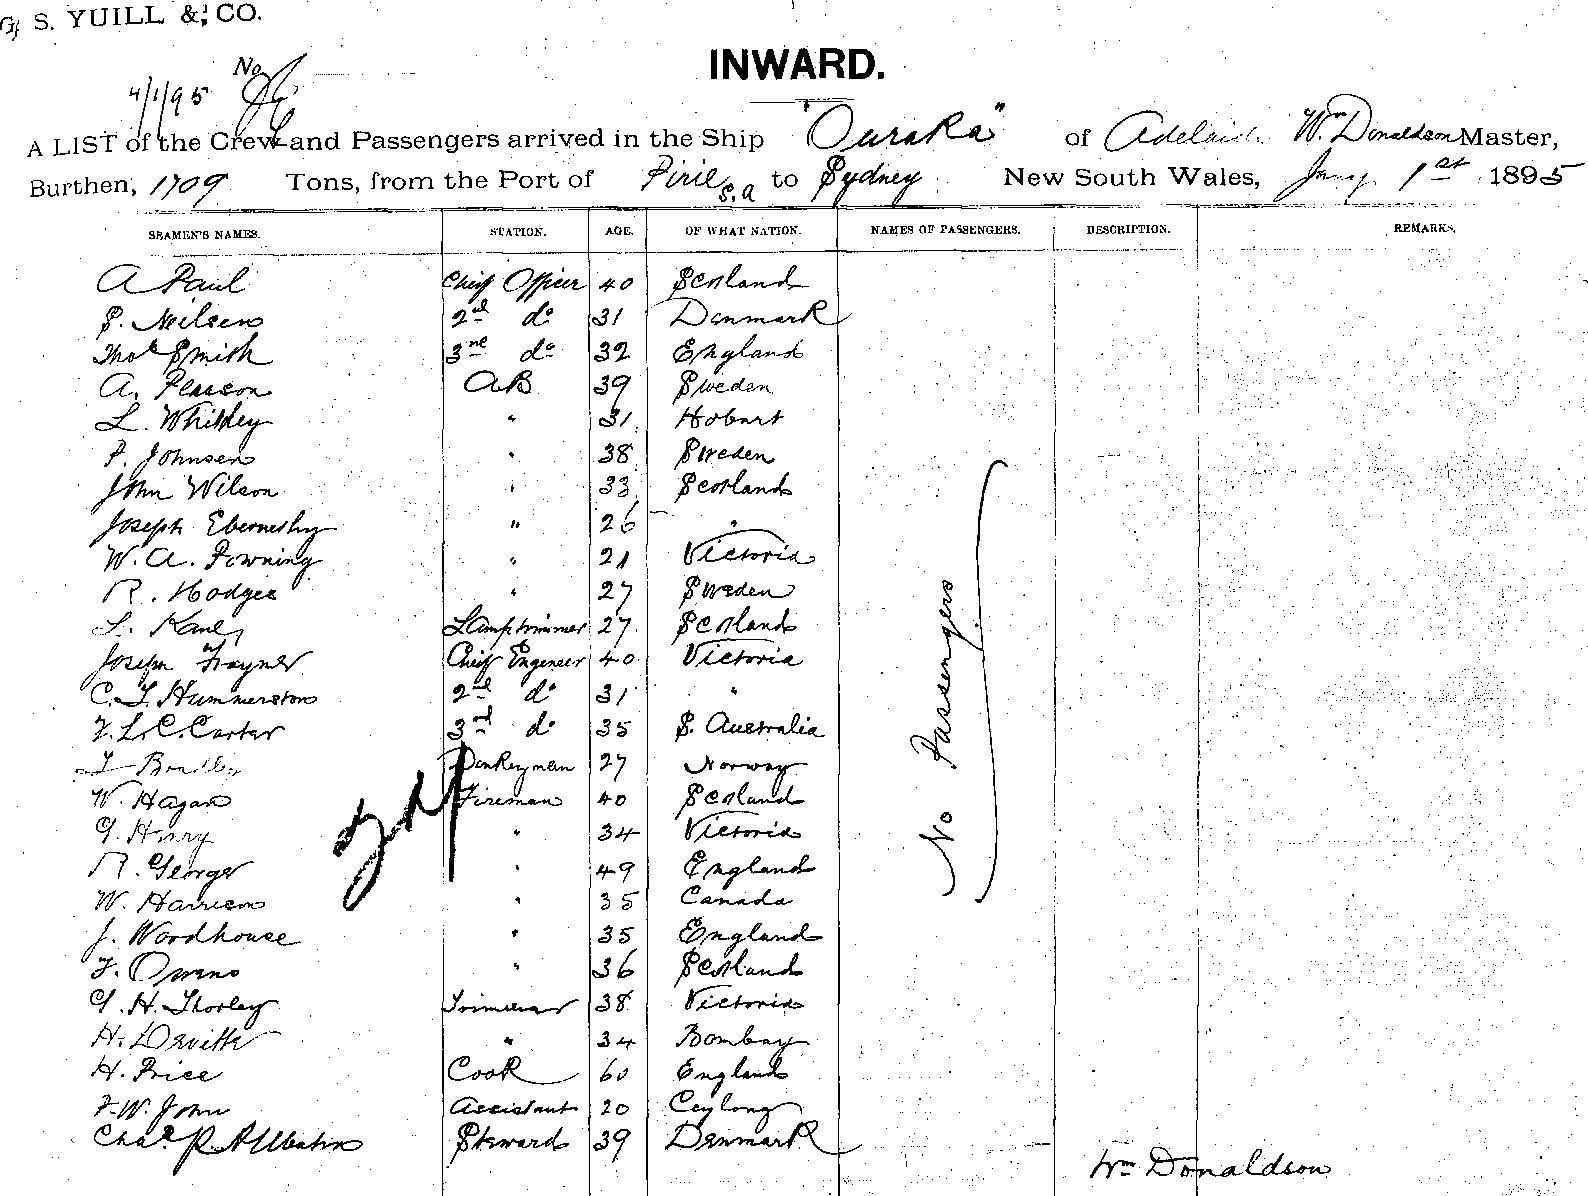 G. S. YUILL & CO.
No
4/1/95
INWARD.
A LIST of the Crew and Passengers arrived in the Ship "Ouraka" of Adelaide Wm Donaldson Master,
Burthen, 1709 Tons, from the Port of Pirie S.A to Sydney New South Wales, Jany 1st 1895
SEAMEN'S NAMES. STATION. AGE. OF WHAT NATION. NAMES OF PASSENGERS. DESCRIPTION. REMARKS.
A Paul Chief Officer 40 Scotland
S. Neilsen 2nd do 31 Denmark
Thos Smith 3rd do 32 England
A. Pearson AB 39 Sweden
L. Whitley " 31 Hobart
P. Johnsen " 38 Sweden
John Wilson " 33 Scotland
Joseph " 26 "
W. A. " 21 Victoria
R. Hodges " 27 Sweden
L. Lamptrimmer 27 Scotland
Joseph Trayner Chief Engeneer 40 Victoria
C. T. Hummerston 2nd do 31 "
F. L. C. Carter 3rd do 35 S. Australia
Bradley Donkeyman 27 Norway
W. Hagan Fireman 40 Scotland
G. Henry " 34 Victoria
R. George " 49 England
W. Harrison " 35 Canada
J. Woodhouse " 35 England
F. Owens " 36 Scotland
G. H. Thorley Trimmer 38 Victoria
H. " 34 Bombay
H. Price Cook 60 England
F. W. John Assistant 20 Ceylong
Chas. P. Steward 39 Denmark
No Passengers
Wm Donaldson